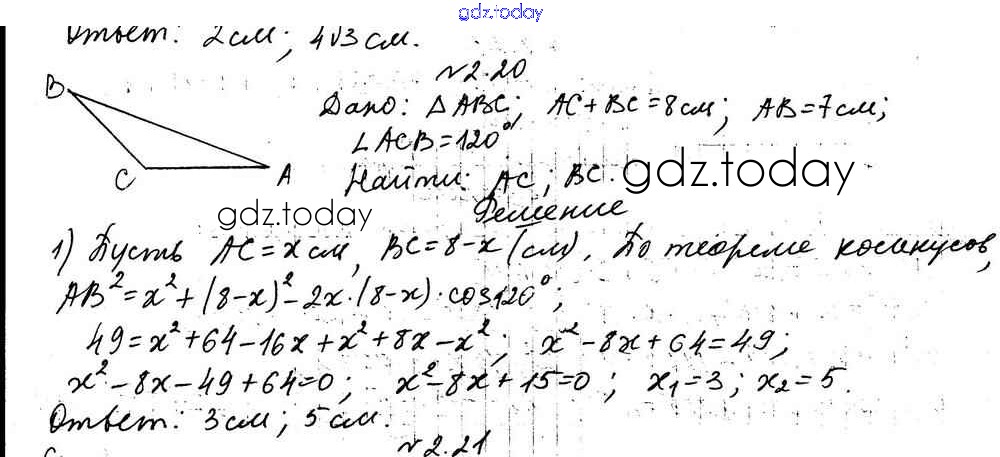 gdz.today
Ответ: 2 см; 4√3 см.
№2.20
B
Дано: △ABC; AC+BC=8 см; AB=7 см;
∠ACB=120°
C
A
Найти: AC; BC.
gdz.today
gdz.today
Решение
1) Пусть AC=x см, BC=8-x (см). По теореме косинусов,
AB²=x²+(8-x)²-2x·(8-x)·cos120°;
49=x²+64-16x+x²+8x-x²; x²-8x+64=49;
x²-8x-49+64=0; x²-8x+15=0; x₁=3; x₂=5.
Ответ: 3 см; 5 см.
№2.21